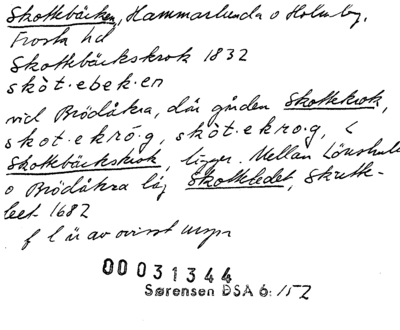 Skottebäcken, Hammarlunda o Holmby,
Frosta hd
Skottebäckskrok 1832
skòt·ebek·en
vid Brödåkra, där gården Skottekrok,
skot·ekró·g, skòt·ekro·g, <
Skottebäckskrok, ligger. Mellan Lönshult
o Brödåkra låg Skotteledet, Skotte-
leet 1682
f l är av ovisst urspr
00031344
Sørensen DSA 6: 152